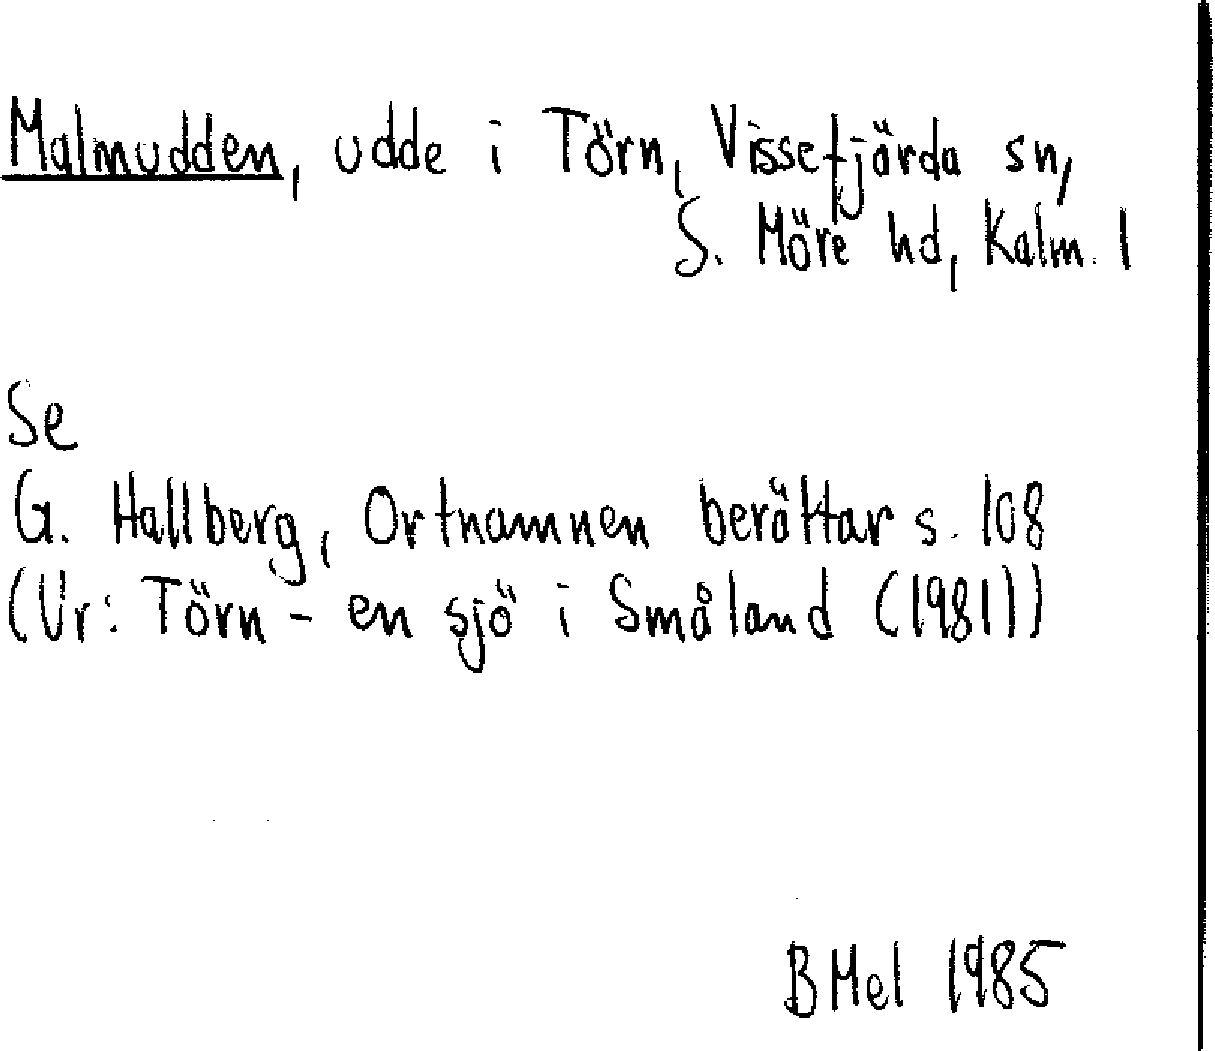 Malmudden, udde i Törn, Vissefjärda sn,
S. Möre hd, Kalm. l
Se
G. Hallberg, Ortnamnen berättar s. 108
(Ur: Törn - en sjö i Småland (1981))
BMel 1985